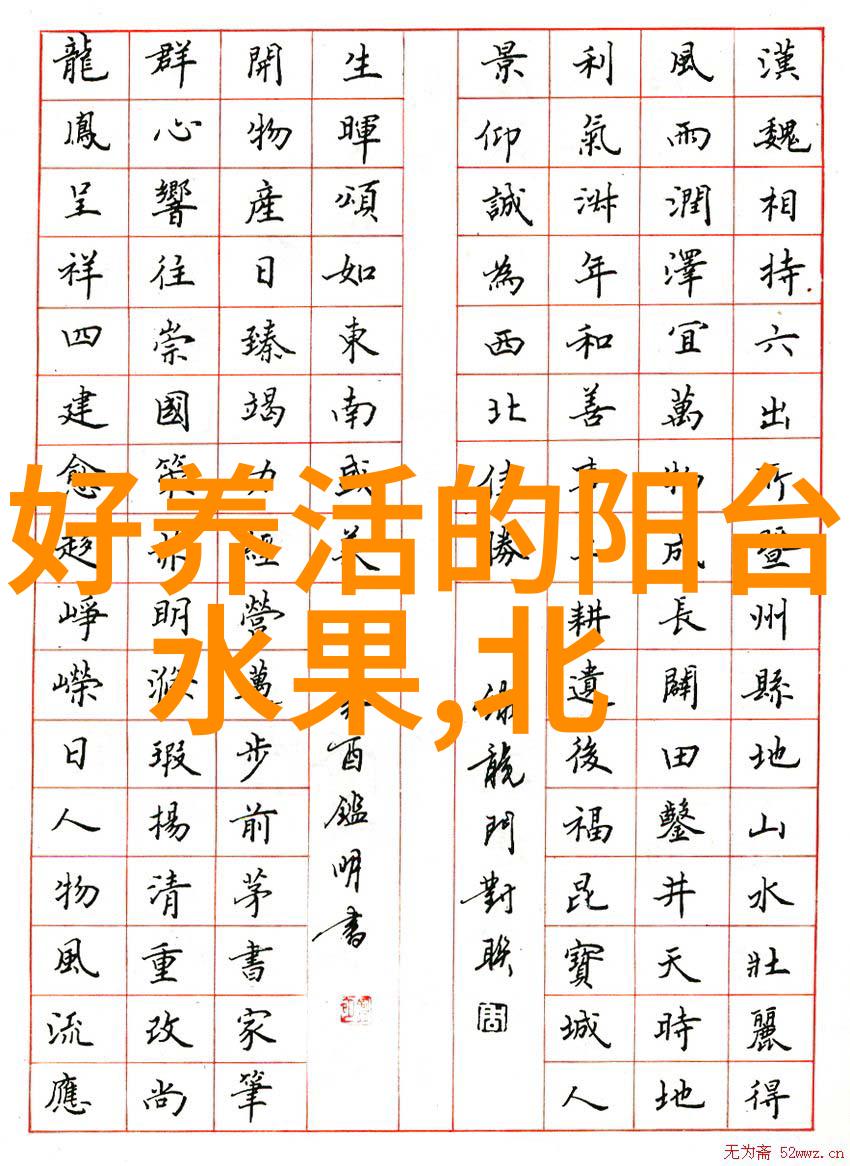 好养活的阳台
水果,北
漢魏相持六出所暨州縣地山水壯麗得
風雨潤澤宜萬物成長闢田鑿井天時地
利氣年和善耕遺後福昆寶城人
景仰誠為西北佳勝
龍門對聯
生暉頌如東南或美
酉鑑明書
開物產日臻竭力經營萬步前茅書家筆
群心響往崇國策亦明滌瑕揚清重改尚
龍鳳呈祥四建愈趍崢嶸日人物風流應
无为斋 52wwz.cn